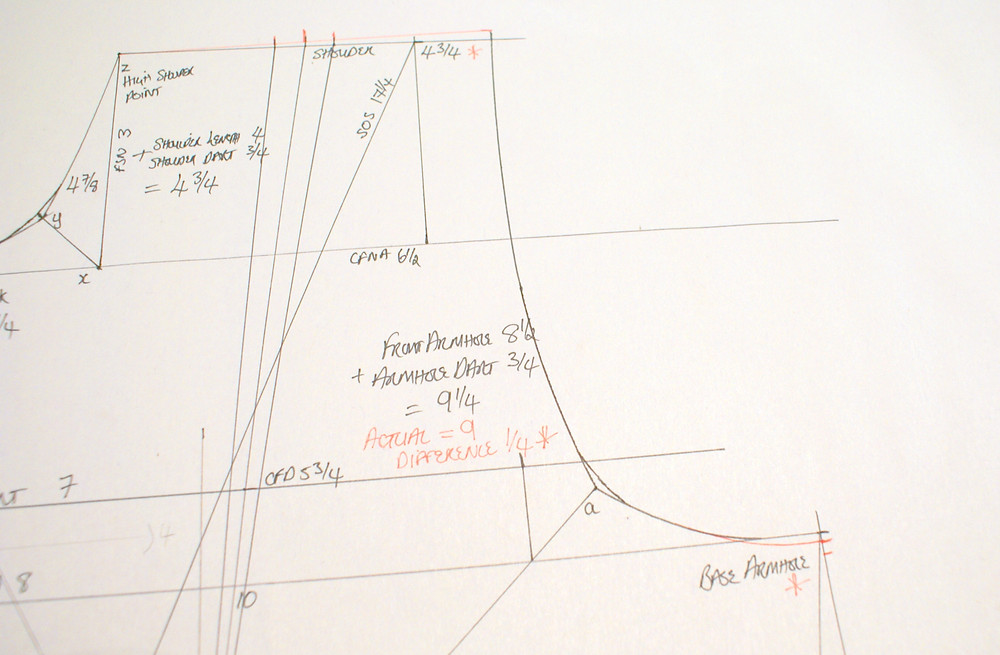 SHOULDER
4 3/4 *
z
HIGH SHOULDER
POINT
SOS 17 1/4
FSW 3
+ SHOULDER LENGTH 4
SHOULDER DART 3/4
= 4 3/4
4 7/8
y
x
CFNA 6 1/2
1/4
FRONT ARMHOLE 8 1/2
+ ARMHOLE DART 3/4
= 9 1/4
ACTUAL = 9
DIFFERENCE 1/4 *
CFD 5 3/4
7
a
4
BASE ARMHOLE
*
8
10